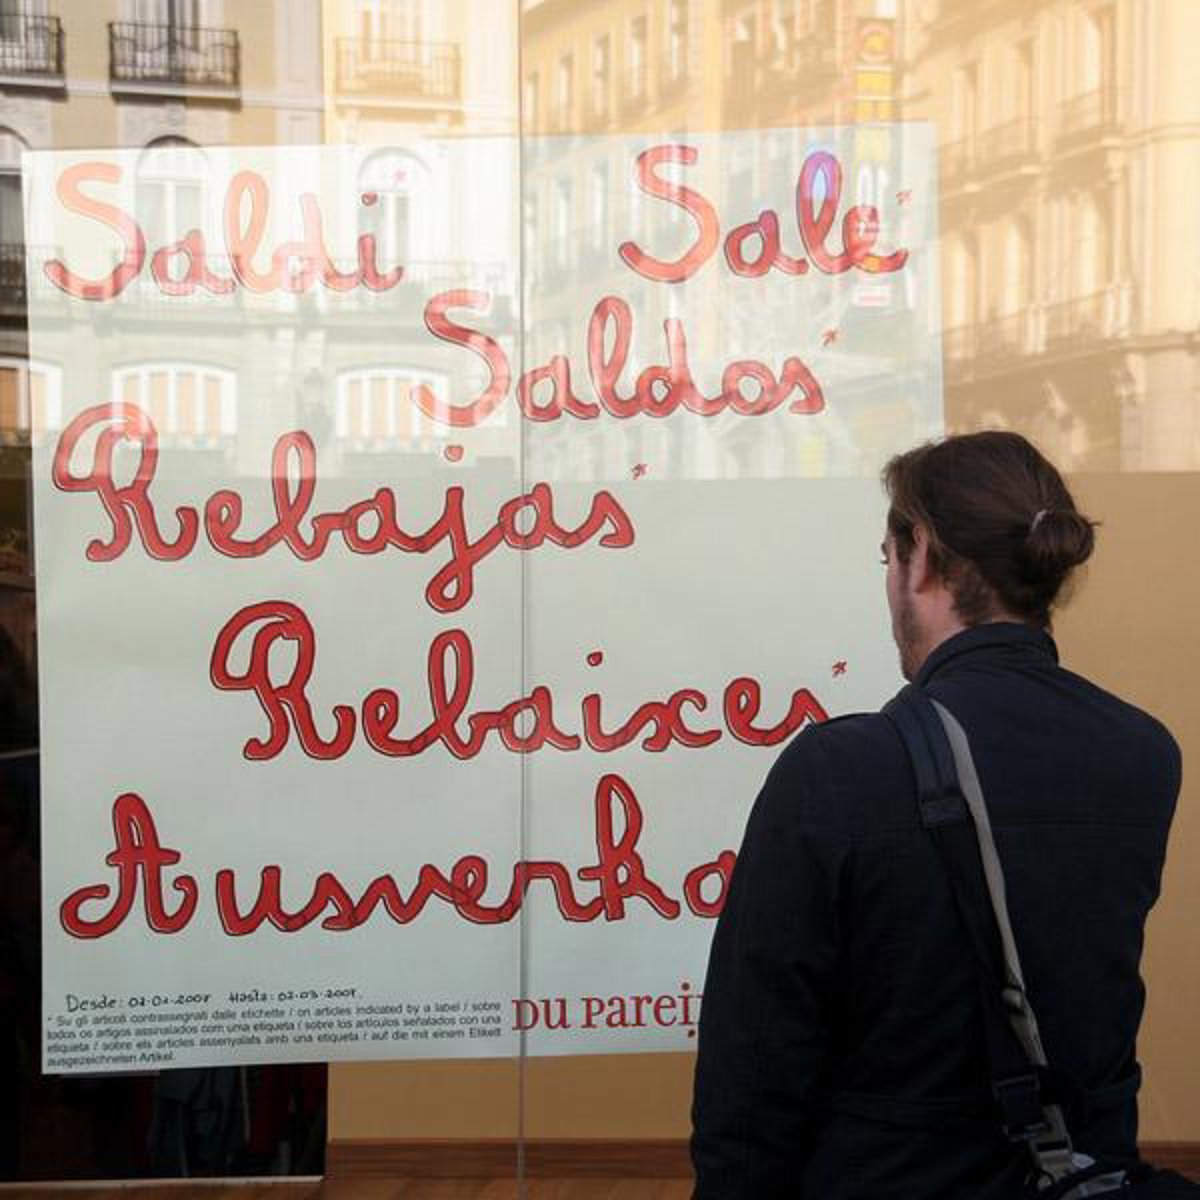 Saldi*
Sale*
Saldos*
Rebajas*
Rebaixes*
Ausverka
Desde: 07-01-2008 Hasta: 02-03-2008.
* Su gli articoli contrassegnati dalle etichette / on articles indicated by a label / sobre
todos os artigos assinalados com uma etiqueta / sobre los artículos señalados con una
etiqueta / sobre els articles assenyalats amb una etiqueta / auf die mit einem Etikett
ausgezeichnetsn Artikel.
DU PAREI